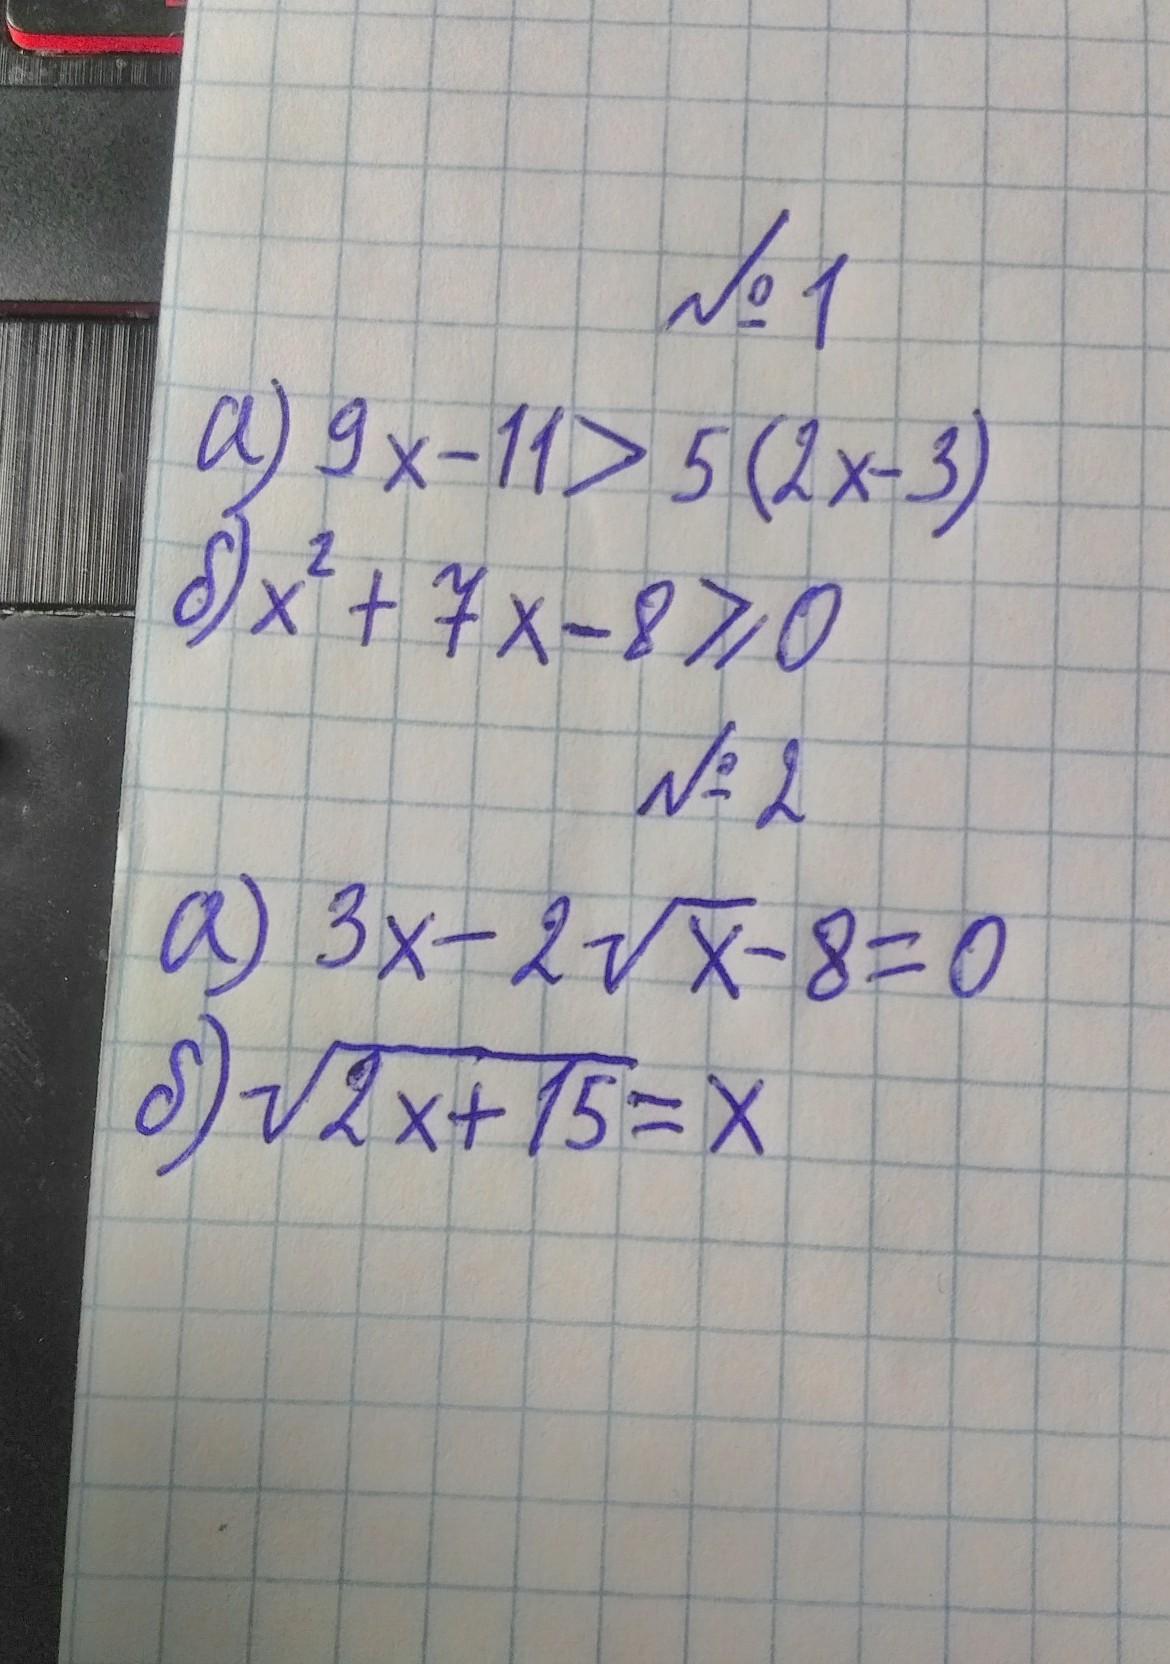 №1
а) 9x-11>5(2x-3)
б) x²+7x-8⩾0
№2
а) 3x-2√x-8=0
б) √(2x+15)=x